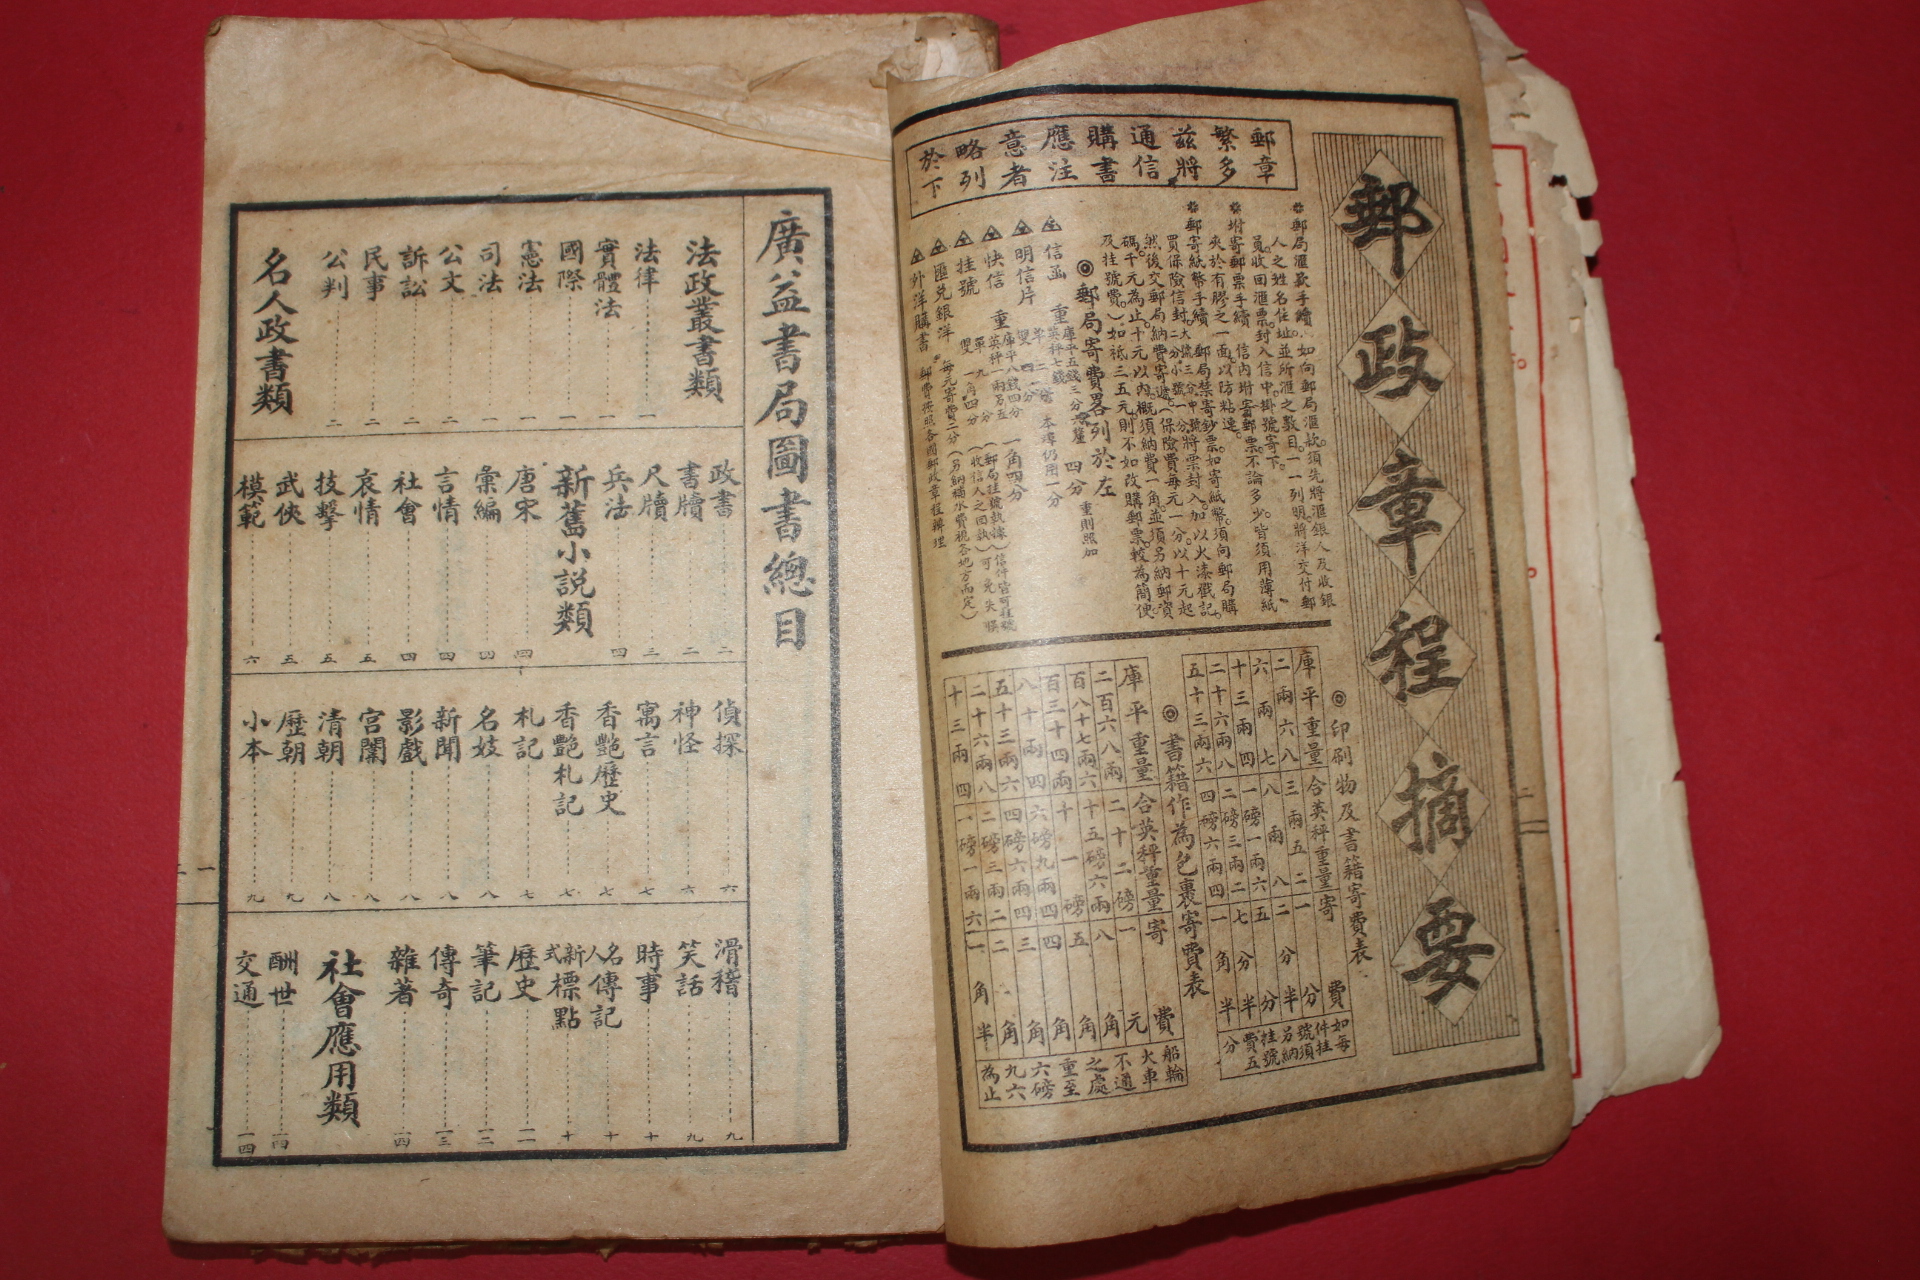 郵政章程摘要
郵章
繁多
茲將
通信
購書
應注
意者
略列
於下
郵局滙欵手續 如向郵局滙欵須先將滙銀人及收銀
人之姓名住址並所滙之數目一一列明將洋交付郵
員收回滙票封入信中掛號寄下
坿寄郵票手續 信內坿寄郵票不論多少皆須用薄紙
夾於有膠之一面以防粘連
郵寄紙幣手續 郵局禁寄鈔票如寄紙幣須向郵局購
買保險信封大號三分中號二分小號一分將票封入加以火漆戳記
然後交郵局納費寄遞（保險費每元一分以十元起
碼千元為止十元以內概須納費一角並須另納郵資
及挂號費）如祇三五元則不如改購郵票較為簡便
◎郵局寄費畧列於左
信函 重
明信片
快信 重
挂號
匯兌銀洋 每元寄費二分
外洋購書 郵費按照各國郵政章程辦理
◎印刷物及書籍寄費表
庫平重量 合英秤重量 寄費
二兩六八 三兩五 二分
六兩七 八兩
十三兩四 一磅一兩六 五分
二十六兩八 二磅三兩二 七分半
五十三兩六 四磅六兩四 一角半
如每
件挂
號須
另納
挂號
費五
分
◎書籍作為包裹寄費表
庫平重量 合英秤重量 寄費
二百六八兩 二十二磅 一元
百八十七兩六 十五磅六兩 八角
百三十四兩 十一磅 五角
八十兩四 六磅九兩四 四角
五十三兩六 四磅六兩四 三角
二十六兩八 二磅三兩二 二角
十三兩四 一磅一兩六 一角半
船輪
火車
不通
之處
重至
六磅
九六
為止
廣益書局圖書總目
法政叢書類
法律 一
實體法 一
國際 一
憲法 一
司法 一
公文 二
訴訟 二
民事 二
公判 二
名人政書類
政書 二
書牘 二
尺牘 三
兵法 四
新舊小說類
唐宋 四
彙編 四
言情 四
社會 四
哀情 五
技擊 五
武俠 五
模範 六
偵探 六
神怪 六
寓言 七
香艷歷史 七
香艷札記 七
札記 七
名妓 八
新聞 八
影戲 八
宮闈 八
清朝 八
歷朝 九
小本 九
滑稽 九
笑話 九
時事 十
名人傳記 十
新式標點 十
歷史 一一
筆記 一二
傳奇 一三
雜著 一四
社會應用類
酬世 一四
交通 一四